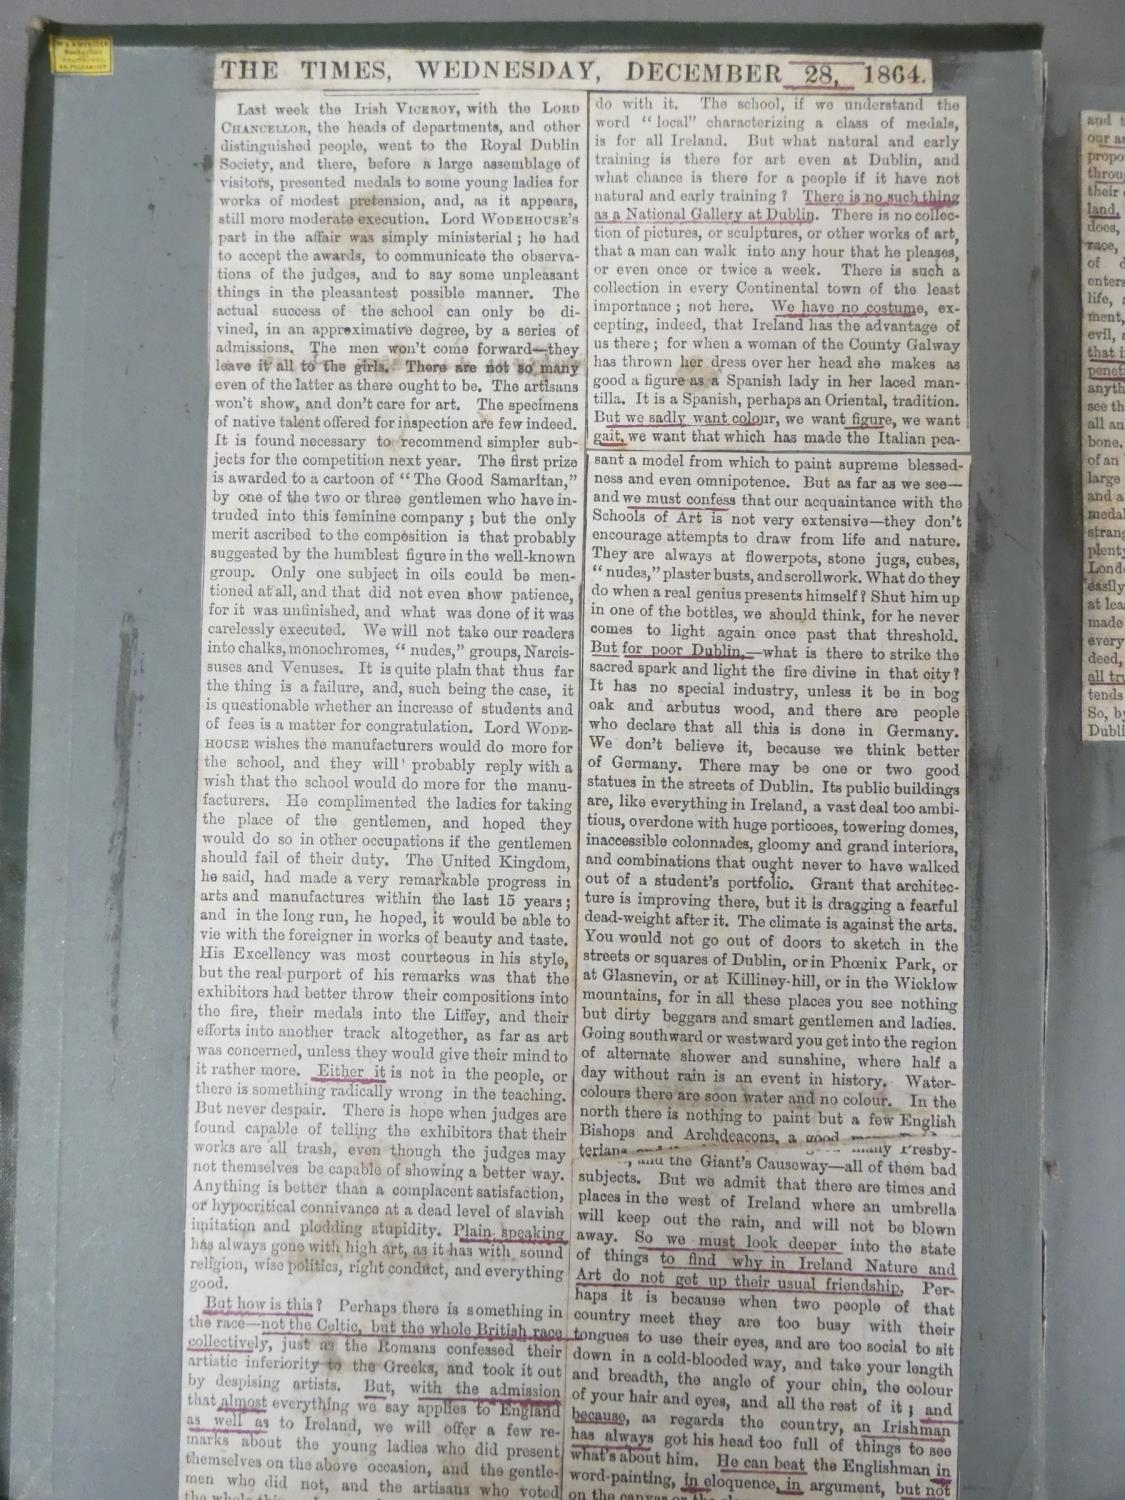 THE TIMES, WEDNESDAY, DECEMBER 28, 1864.
Last week the Irish VICEROY, with the LORD
CHANCELLOR, the heads of departments, and other
distinguished people, went to the Royal Dublin
Society, and there, before a large assemblage of
visitors, presented medals to some young ladies for
works of modest pretension, and, as it appears,
still more moderate execution. Lord WODEHOUSE'S
part in the affair was simply ministerial; he had
to accept the awards, to communicate the observa-
tions of the judges, and to say some unpleasant
things in the pleasantest possible manner. The
actual success of the school can only be di-
vined, in an approximative degree, by a series of
admissions. The men won't come forward—they
leave it all to the girls. There are not so many
even of the latter as there ought to be. The artisans
won't show, and don't care for art. The specimens
of native talent offered for inspection are few indeed.
It is found necessary to recommend simpler sub-
jects for the competition next year. The first prize
is awarded to a cartoon of "The Good Samaritan,"
by one of the two or three gentlemen who have in-
truded into this feminine company; but the only
merit ascribed to the composition is that probably
suggested by the humblest figure in the well-known
group. Only one subject in oils could be men-
tioned at all, and that did not even show patience,
for it was unfinished, and what was done of it was
carelessly executed. We will not take our readers
into chalks, monochromes, "nudes," groups, Narcis-
suses and Venuses. It is quite plain that thus far
the thing is a failure, and, such being the case, it
is questionable whether an increase of students and
of fees is a matter for congratulation. Lord WODE-
HOUSE wishes the manufacturers would do more for
the school, and they will probably reply with a
wish that the school would do more for the manu-
facturers. He complimented the ladies for taking
the place of the gentlemen, and hoped they
would do so in other occupations if the gentlemen
should fail of their duty. The United Kingdom,
he said, had made a very remarkable progress in
arts and manufactures within the last 15 years;
and in the long run, he hoped, it would be able to
vie with the foreigner in works of beauty and taste.
His Excellency was most courteous in his style,
but the real purport of his remarks was that the
exhibitors had better throw their compositions into
the fire, their medals into the Liffey, and their
efforts into another track altogether, as far as art
was concerned, unless they would give their mind to
it rather more. Either it is not in the people, or
there is something radically wrong in the teaching.
But never despair. There is hope when judges are
found capable of telling the exhibitors that their
works are all trash, even though the judges may
not themselves be capable of showing a better way.
Anything is better than a complacent satisfaction,
or hypocritical connivance at a dead level of slavish
imitation and plodding stupidity. Plain speaking
has always gone with high art, as it has with sound
religion, wise politics, right conduct, and everything
good.
But how is this? Perhaps there is something in
the race—not the Celtic, but the whole British race
collectively, just as the Romans confessed their
artistic inferiority to the Greeks, and took it out
by despising artists. But, with the admission
that almost everything we say applies to England
as well as to Ireland, we will offer a few re-
marks about the young ladies who did present
themselves on the above occasion, and the gentle-
men who did not, and the artisans who voted
the whole thing
do with it. The school, if we understand the
word "local" characterizing a class of medals,
is for all Ireland. But what natural and early
training is there for art even at Dublin, and
what chance is there for a people if it have not
natural and early training? There is no such thing
as a National Gallery at Dublin. There is no collec-
tion of pictures, or sculptures, or other works of art,
that a man can walk into any hour that he pleases,
or even once or twice a week. There is such a
collection in every Continental town of the least
importance; not here. We have no costume, ex-
cepting, indeed, that Ireland has the advantage of
us there; for when a woman of the County Galway
has thrown her dress over her head she makes as
good a figure as a Spanish lady in her laced man-
tilla. It is a Spanish, perhaps an Oriental, tradition.
But we sadly want colour, we want figure, we want
gait, we want that which has made the Italian pea-
sant a model from which to paint supreme blessed-
ness and even omnipotence. But as far as we see—
and we must confess that our acquaintance with the
Schools of Art is not very extensive—they don't
encourage attempts to draw from life and nature.
They are always at flowerpots, stone jugs, cubes,
"nudes," plaster busts, and scrollwork. What do they
do when a real genius presents himself? Shut him up
in one of the bottles, we should think, for he never
comes to light again once past that threshold.
But for poor Dublin,—what is there to strike the
sacred spark and light the fire divine in that city?
It has no special industry, unless it be in bog
oak and arbutus wood, and there are people
who declare that all this is done in Germany.
We don't believe it, because we think better
of Germany. There may be one or two good
statues in the streets of Dublin. Its public buildings
are, like everything in Ireland, a vast deal too ambi-
tious, overdone with huge porticoes, towering domes,
inaccessible colonnades, gloomy and grand interiors,
and combinations that ought never to have walked
out of a student's portfolio. Grant that architec-
ture is improving there, but it is dragging a fearful
dead-weight after it. The climate is against the arts.
You would not go out of doors to sketch in the
streets or squares of Dublin, or in Phœnix Park, or
at Glasnevin, or at Killiney-hill, or in the Wicklow
mountains, for in all these places you see nothing
but dirty beggars and smart gentlemen and ladies.
Going southward or westward you get into the region
of alternate shower and sunshine, where half a
day without rain is an event in history. Water-
colours there are soon water and no colour. In the
north there is nothing to paint but a few English
Bishops and Archdeacons, a good many Presby-
terians and the Giant's Causeway—all of them bad
subjects. But we admit that there are times and
places in the west of Ireland where an umbrella
will keep out the rain, and will not be blown
away. So we must look deeper into the state
of things to find why in Ireland Nature and
Art do not get up their usual friendship. Per-
haps it is because when two people of that
country meet they are too busy with their
tongues to use their eyes, and are too social to sit
down in a cold-blooded way, and take your length
and breadth, the angle of your chin, the colour
of your hair and eyes, and all the rest of it; and
because, as regards the country, an Irishman
has always got his head too full of things to see
what's about him. He can beat the Englishman in
word-painting, in eloquence, in argument, but not
on the canvas or the
and t
our
propo
throu
their
land,
does,
race,
of
enters
life,
ment,
evil,
that i
penet
anyth
see th
all an
bone.
of an
large
and a
medal
strang
plenty
Lond
easily
at lea
made
every
deed,
all tru
tends
So, by
Dubli